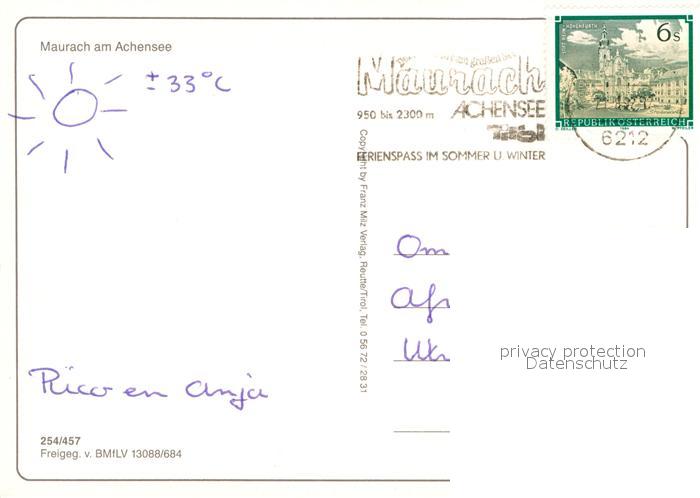 Maurach am Achensee
± 33°C
Maurach
950 bis 2300 m ACHENSEE
Tirol
FERIENSPASS IM SOMMER U. WINTER
STIFT REIN-HOHENFURTH
6s
REPUBLIK ÖSTERREICH
6212
Copyright by Franz Milz Verlag, Reutte/Tirol, Tel. 0 56 72 / 28 31
Om
Af
privacy protection
Datenschutz
Rico en Anja
254/457
Freigeg. v. BMfLV 13088/684